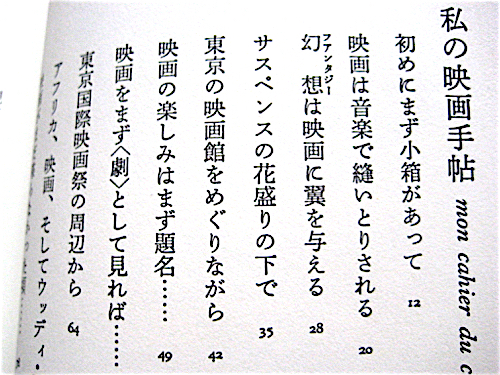 私の映画手帖 mon cahier du c
初めにまず小箱があって 12
映画は音楽で縫いとりされる 20
幻想は映画に翼を与える 28
ファンタジー
サスペンスの花盛りの下で 35
東京の映画館をめぐりながら 42
映画の楽しみはまず題名…… 49
映画をまず〈劇〉として見れば……
東京国際映画祭の周辺から 64
アフリカ、映画、そしてウッディ・